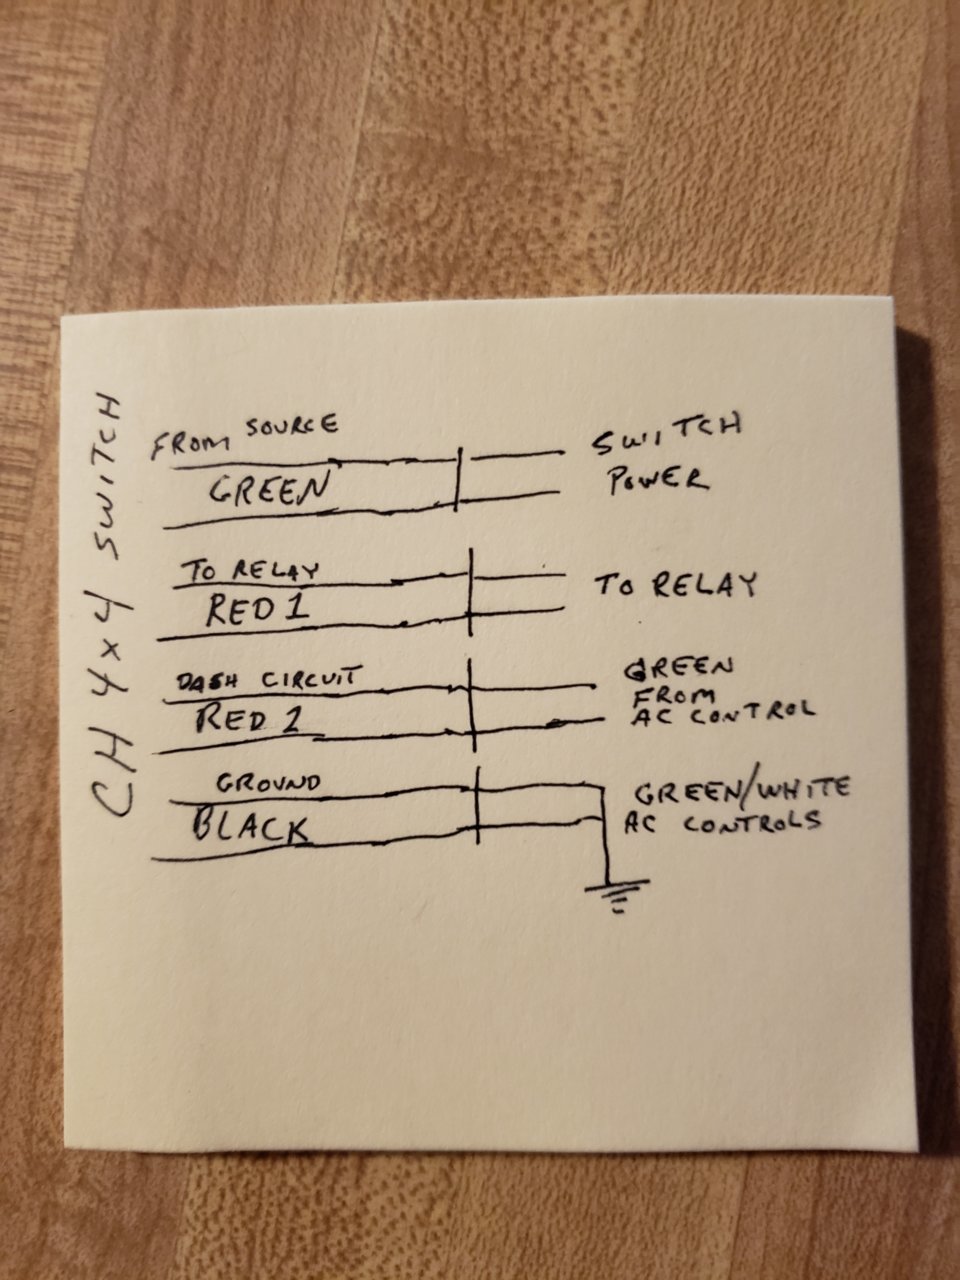 CH 4x4 SWITCH
FROM SOURCE
GREEN
SWITCH
POWER
TO RELAY
RED 1
TO RELAY
DASH CIRCUIT
RED 2
GREEN
FROM
AC CONTROL
GROUND
BLACK
GREEN/WHITE
AC CONTROLS